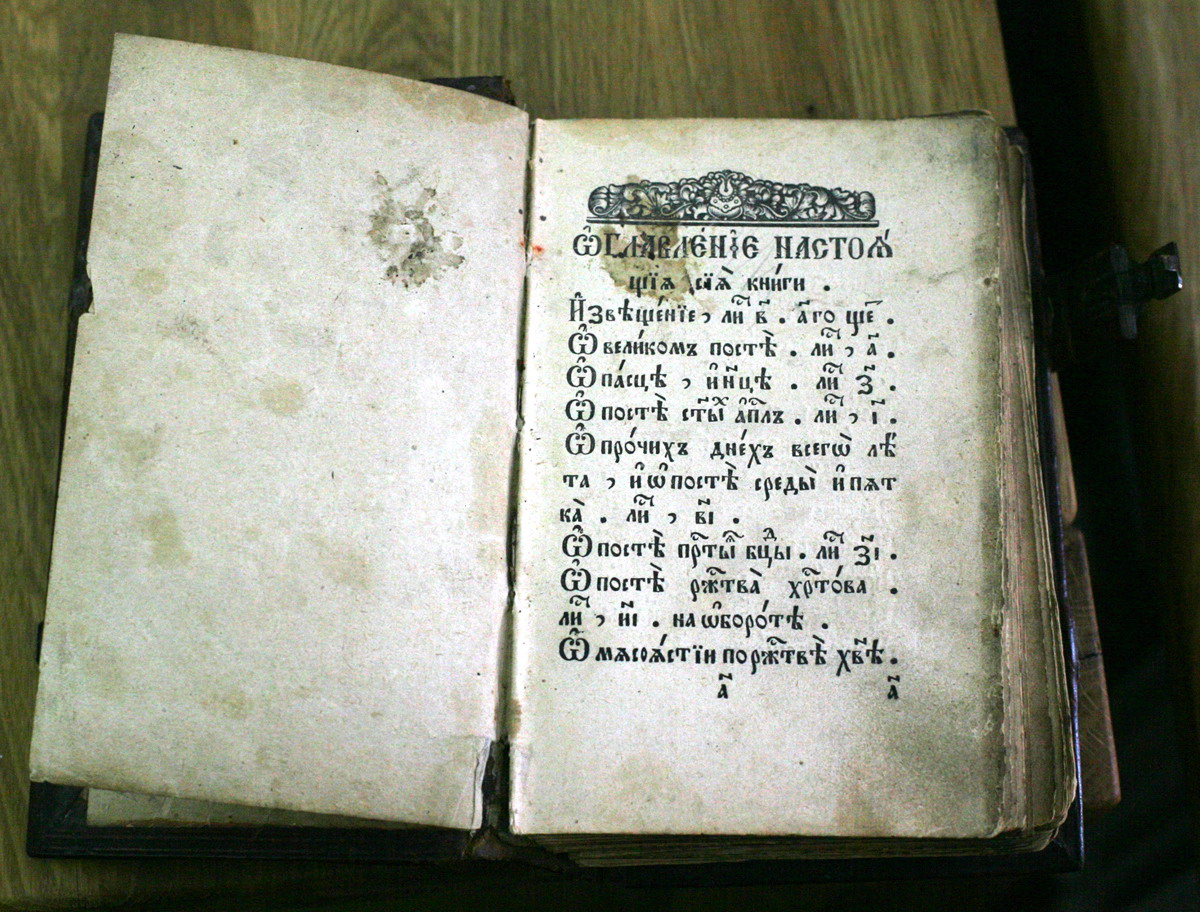 Ѡ҆ГЛАВЛЕ́НІЕ НАСТОѦ́
щїѧ сїѧ̀ кни́ги .
И҆звѣще́нїе , лиⷭ҇ в҃ . а҃го ще҃ .
Ѿ вели́комъ постѣ̀ . лиⷭ҇ , а҃ .
Ѿ па́сцѣ , и҆ н҃цѣ . лиⷭ҇ з҃ .
Ѿ постѣ̀ ст҃ы́хъ а҆пⷭ҇лъ . лиⷭ҇ , і҃ .
Ѿ про́чихъ дне́хъ всегѡ̀ лѣ́
та , и҆ ѡ҆ постѣ̀ среды̀ и҆ пѧт
ка̀ . лиⷭ҇ , в҃і .
Ѿ постѣ̀ прⷭ҇ты́ѧ бцⷣы . лиⷭ҇ з҃і .
Ѿ постѣ̀ ржⷭ҇тва̀ хрⷭ҇то́ва .
лиⷭ҇ , и҃і . на ѡ҆боро́тѣ .
Ѿ мѧсоѧ́стїи по ржⷭ҇твѣ̀ хв҃ѣ .
а҃ а҃